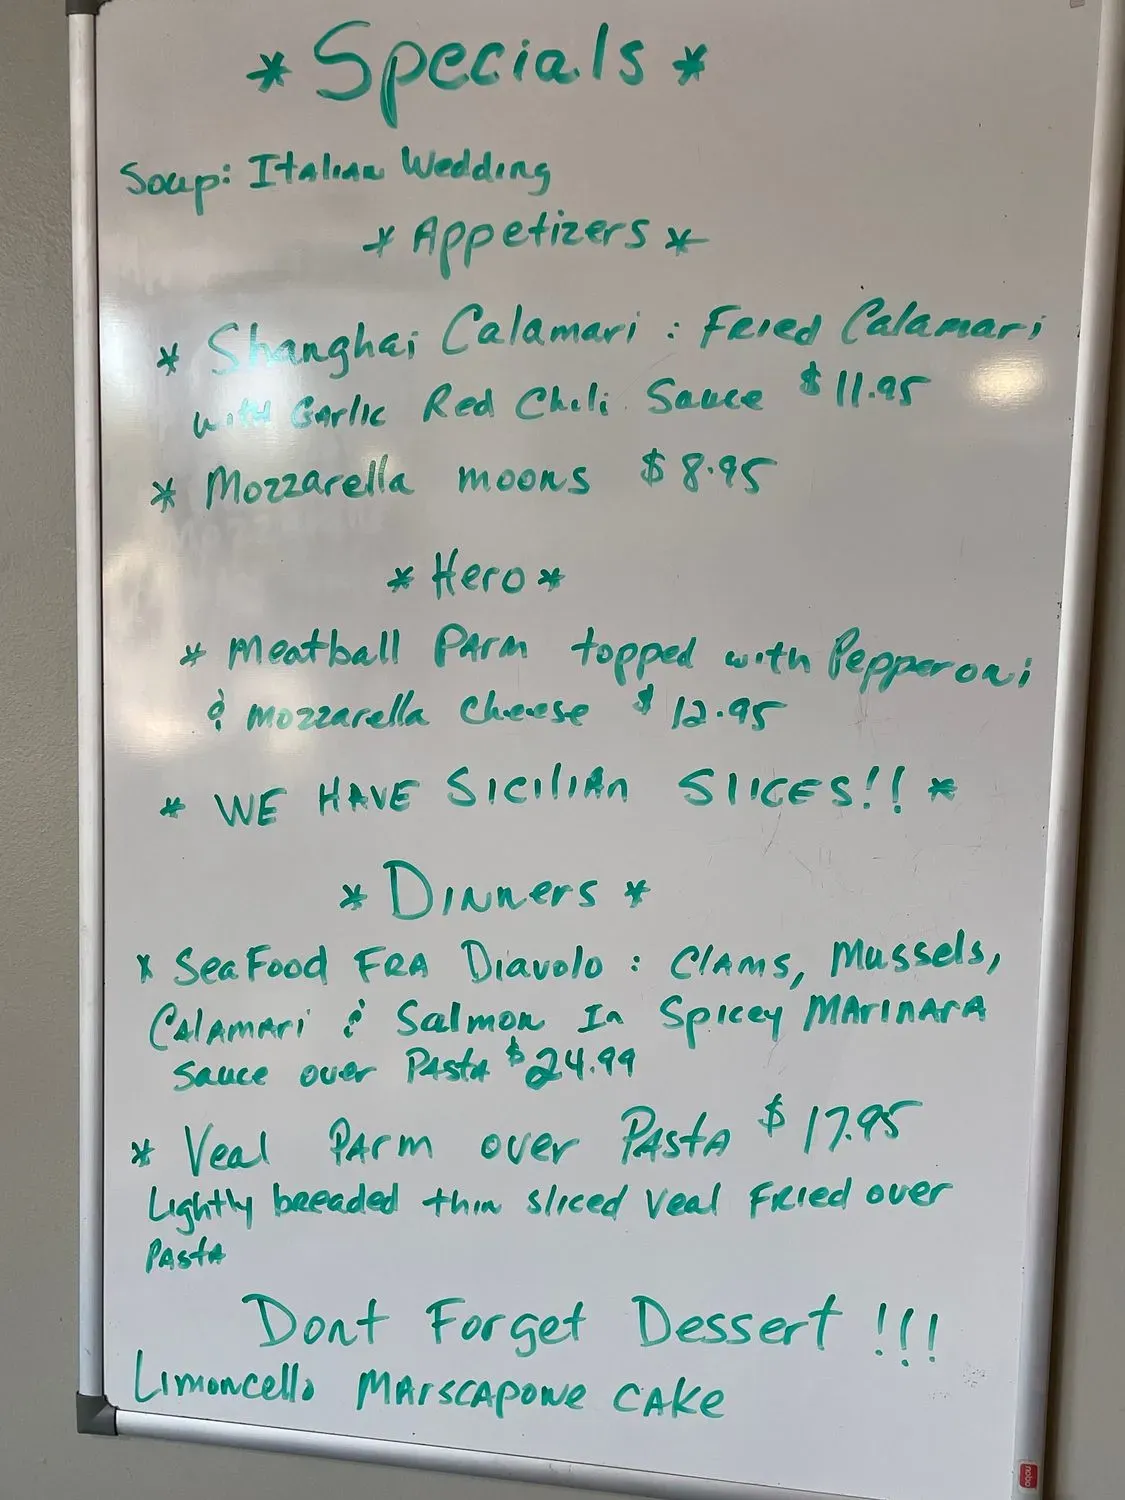 * Specials *
Soup: Italian Wedding
* Appetizers *
* Shanghai Calamari : Fried Calamari
with Garlic Red Chili Sauce $11.95
* Mozzarella moons $8.95
* Hero *
* Meatball Parm topped with Pepperoni
& mozzarella Cheese $12.95
* WE HAVE SICILIAN SLICES!! *
* Dinners *
* Seafood FRA Diavolo : Clams, Mussels,
Calamari & Salmon In Spicey MARINARA
Sauce over Pasta $24.99
* Veal Parm over Pasta $17.95
Lightly breaded thin sliced Veal Fried over
Pasta
Dont Forget Dessert !!!
Limoncello MARSCAPONE CAKE
nobo